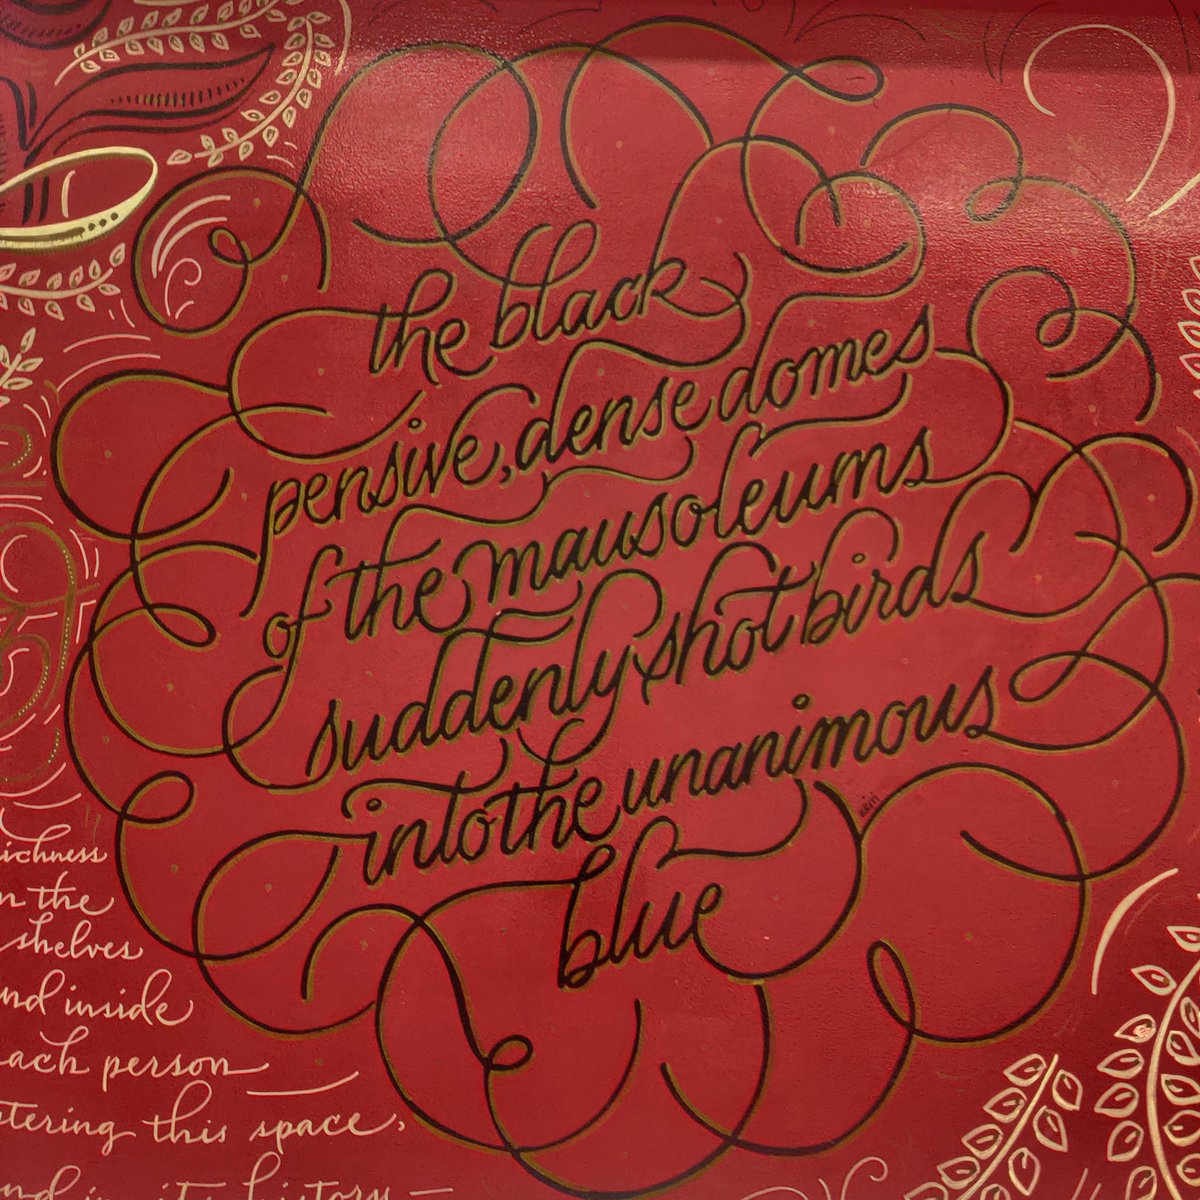 the black
pensive, dense domes
of the mausoleums
suddenly shot birds
into the unanimous
blue
ichness
n the
shelves
nd inside
ach person
tering this space,
nd in its history —